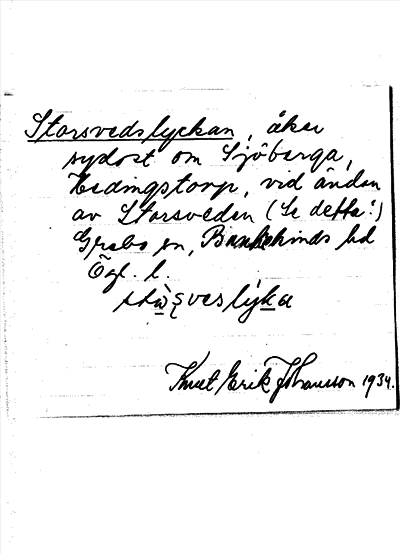 Storsvedslyckan, åker
sydost om Sjöberga,
Hedingstorp, vid ändan
av Storsveden (Se detta!)
Grebo sn, Bankekinds hd
Ögl. l.
Knut Erik Johansson 1934.